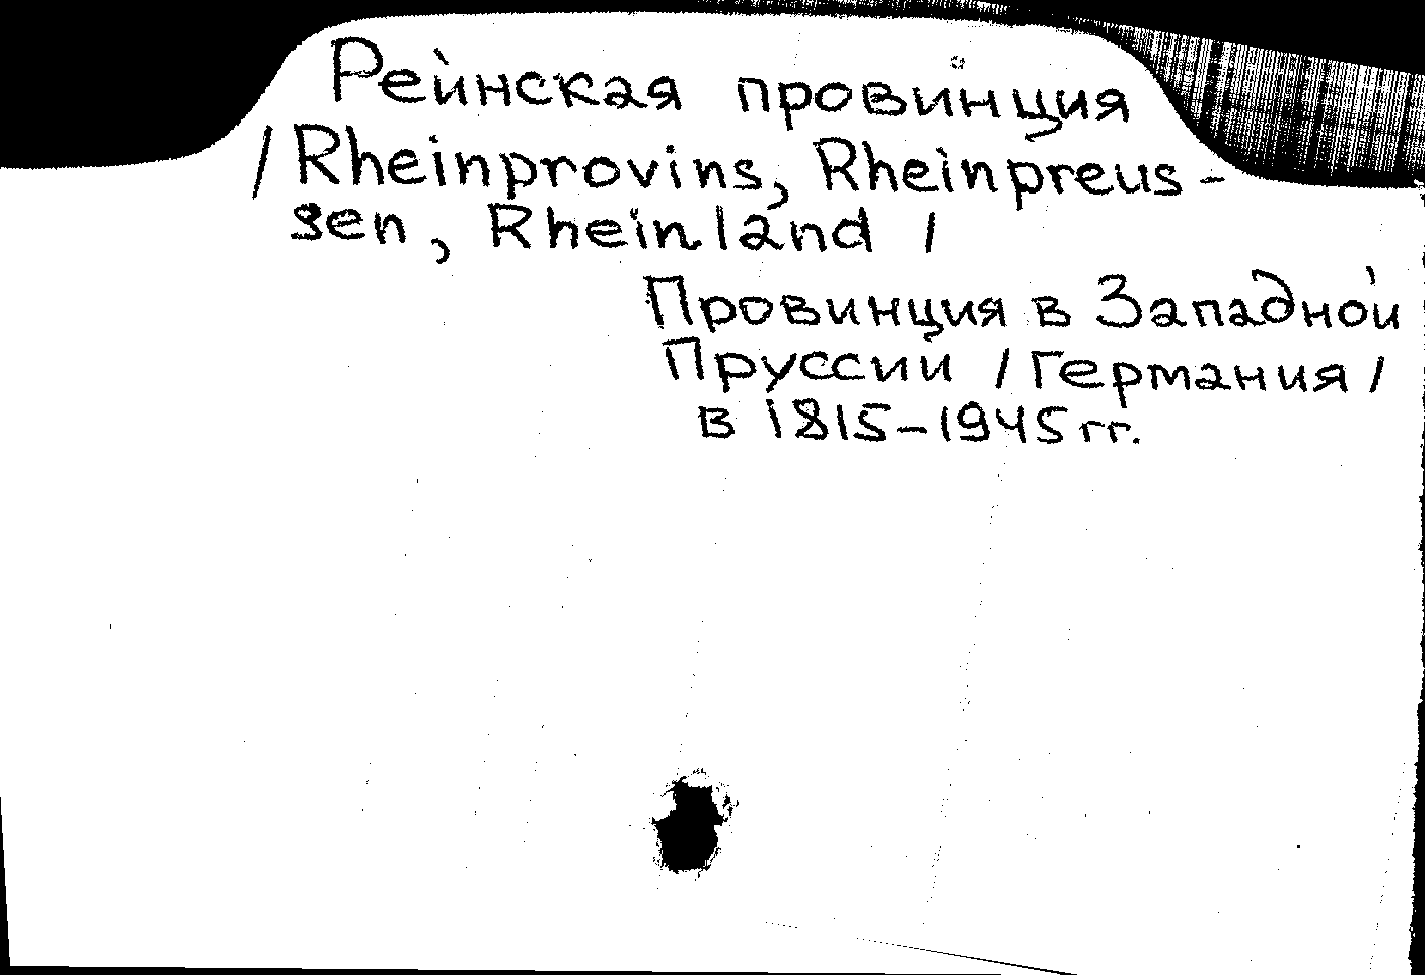 Рейнская провинция
/Rheinprovins, Rheinpreus-
sen, Rheinland /
Провинция в Западной
Пруссии /Германия/
в 1815-1945 гг.